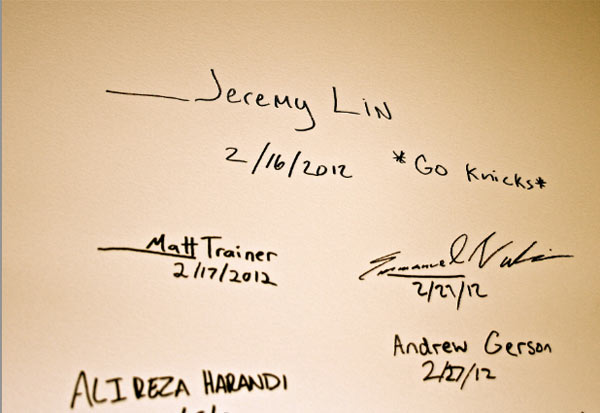 Jeremy Lin
2/16/2012 *Go Knicks*
Matt Trainer
2/17/2012
Emmanuel
2/27/12
Andrew Gerson
2/27/12
ALIREZA HARANDI